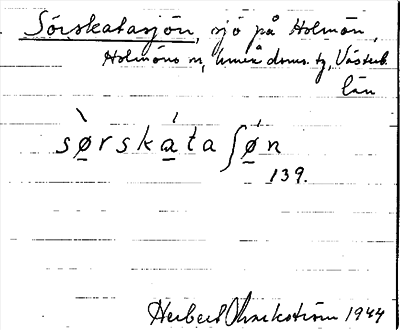 Sörskatasjön, sjö på Holmön,
Holmöns sn, Umeå doms. tg, Västerb.
län
sørskata ʃøn
139.
Herbert Markström 1944